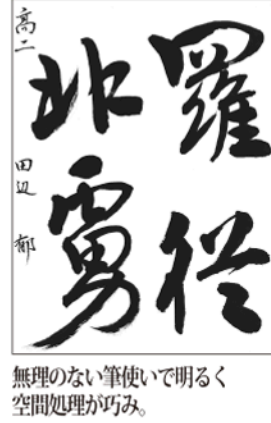 羅従
北虜
高二 田辺 郁
無理のない筆使いで明るく
空間処理が巧み。